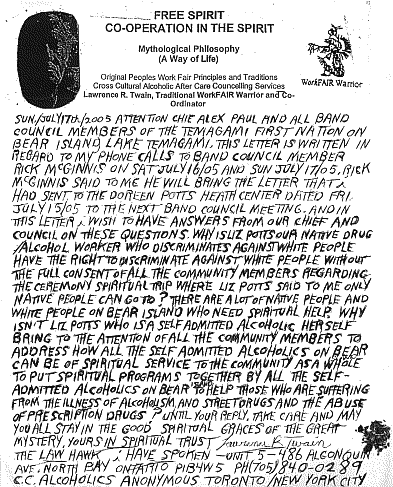 FREE SPIRIT
CO-OPERATION IN THE SPIRIT
Mythological Philosophy
(A Way of Life)
Original Peoples Work Fair Principles and Traditions
Cross Cultural Alcoholic After Care Councelling Services
Lawrence R. Twain, Traditional WorkFAIR Warrior and Co-
Ordinator
WorkFAIR Warrior
SUN/JULY17TH/2005 ATTENTION CHIEF ALEX PAUL AND ALL BAND
COUNCIL MEMBERS OF THE TEMAGAMI FIRST NATION ON
BEAR ISLAND, LAKE TEMAGAMI. THIS LETTER IS WRITTEN IN
REGARD TO MY PHONE CALLS TO BAND COUNCIL MEMBER
RICK McGINNIS ON SAT JULY 16/05 AND SUN JULY 17/05. RICK
McGINNIS SAID TO ME HE WILL BRING THE LETTER THAT i
HAD SENT TO THE DOREEN POTTS HEATH CENTER DATED FRI.
JULY 15/05 TO THE NEXT BAND COUNCIL MEETING. AND IN
THIS LETTER i WISH TO HAVE ANSWERS FROM OUR CHIEF AND
COUNCIL ON THESE QUESTONS. WHY IS LIZ POTTS OUR NATIVE DRUG
/ALCOHOL WORKER WHO DISCRIMINATES AGAINST WHITE PEOPLE
HAVE THE RIGHT TO DISCRIMINATE AGAINST WHITE PEOPLE WITHOUT
THE FULL CONSENT OF ALL THE COMMUNITY MEMBERS REGARDING
THE CEREMONY SPIRITUAL TRIP WHERE LIZ POTTS SAID TO ME ONLY
NATIVE PEOPLE CAN GO TO? THERE ARE A LOT OF NATIVE PEOPLE AND
WHITE PEOPLE ON BEAR ISLAND WHO NEED SPIRITUAL HELP. WHY
ISN'T LIZ POTTS WHO IS A SELF ADMITED ALCOHOLIC HERSELF
BRING TO THE ATTENTION OF ALL THE COMMUNITY MEMBERS TO
ADDRESS HOW ALL THE SELF ADMITED ALCOHOLICS ON BEAR
CAN BE OF SPIRITUAL SERVICE TO THE COMMUNITY AS A WHOLE
TO PUT SPIRITUAL PROGRAMS TOGETHER BY ALL THE SELF-
ADMITED ALCOHOLICS ON BEAR ISLAND TO HELP THOSE WHO ARE SUFFERING
FROM THE ILLNESS OF ALCOHOLISM, AND STREET DRUGS AND THE ABUSE
OF PRESCRIPTION DRUGS? UNTIL YOUR REPLY, TAKE CARE AND MAY
YOU ALL STAY IN THE GOOD SPIRITUAL GRACES OF THE GREAT
MYSTERY, YOURS IN SPIRITUAL TRUST Lawrence R. Twain
THE LAW HAWK, i HAVE SPOKEN - UNIT 5 - 486 ALGONQUIN
AVE. NORTH BAY ONTARIO P1B4W5 PH(705) 840-0289
C.C. ALCOHOLICS ANONYMOUS TORONTO/NEW YORK CITY